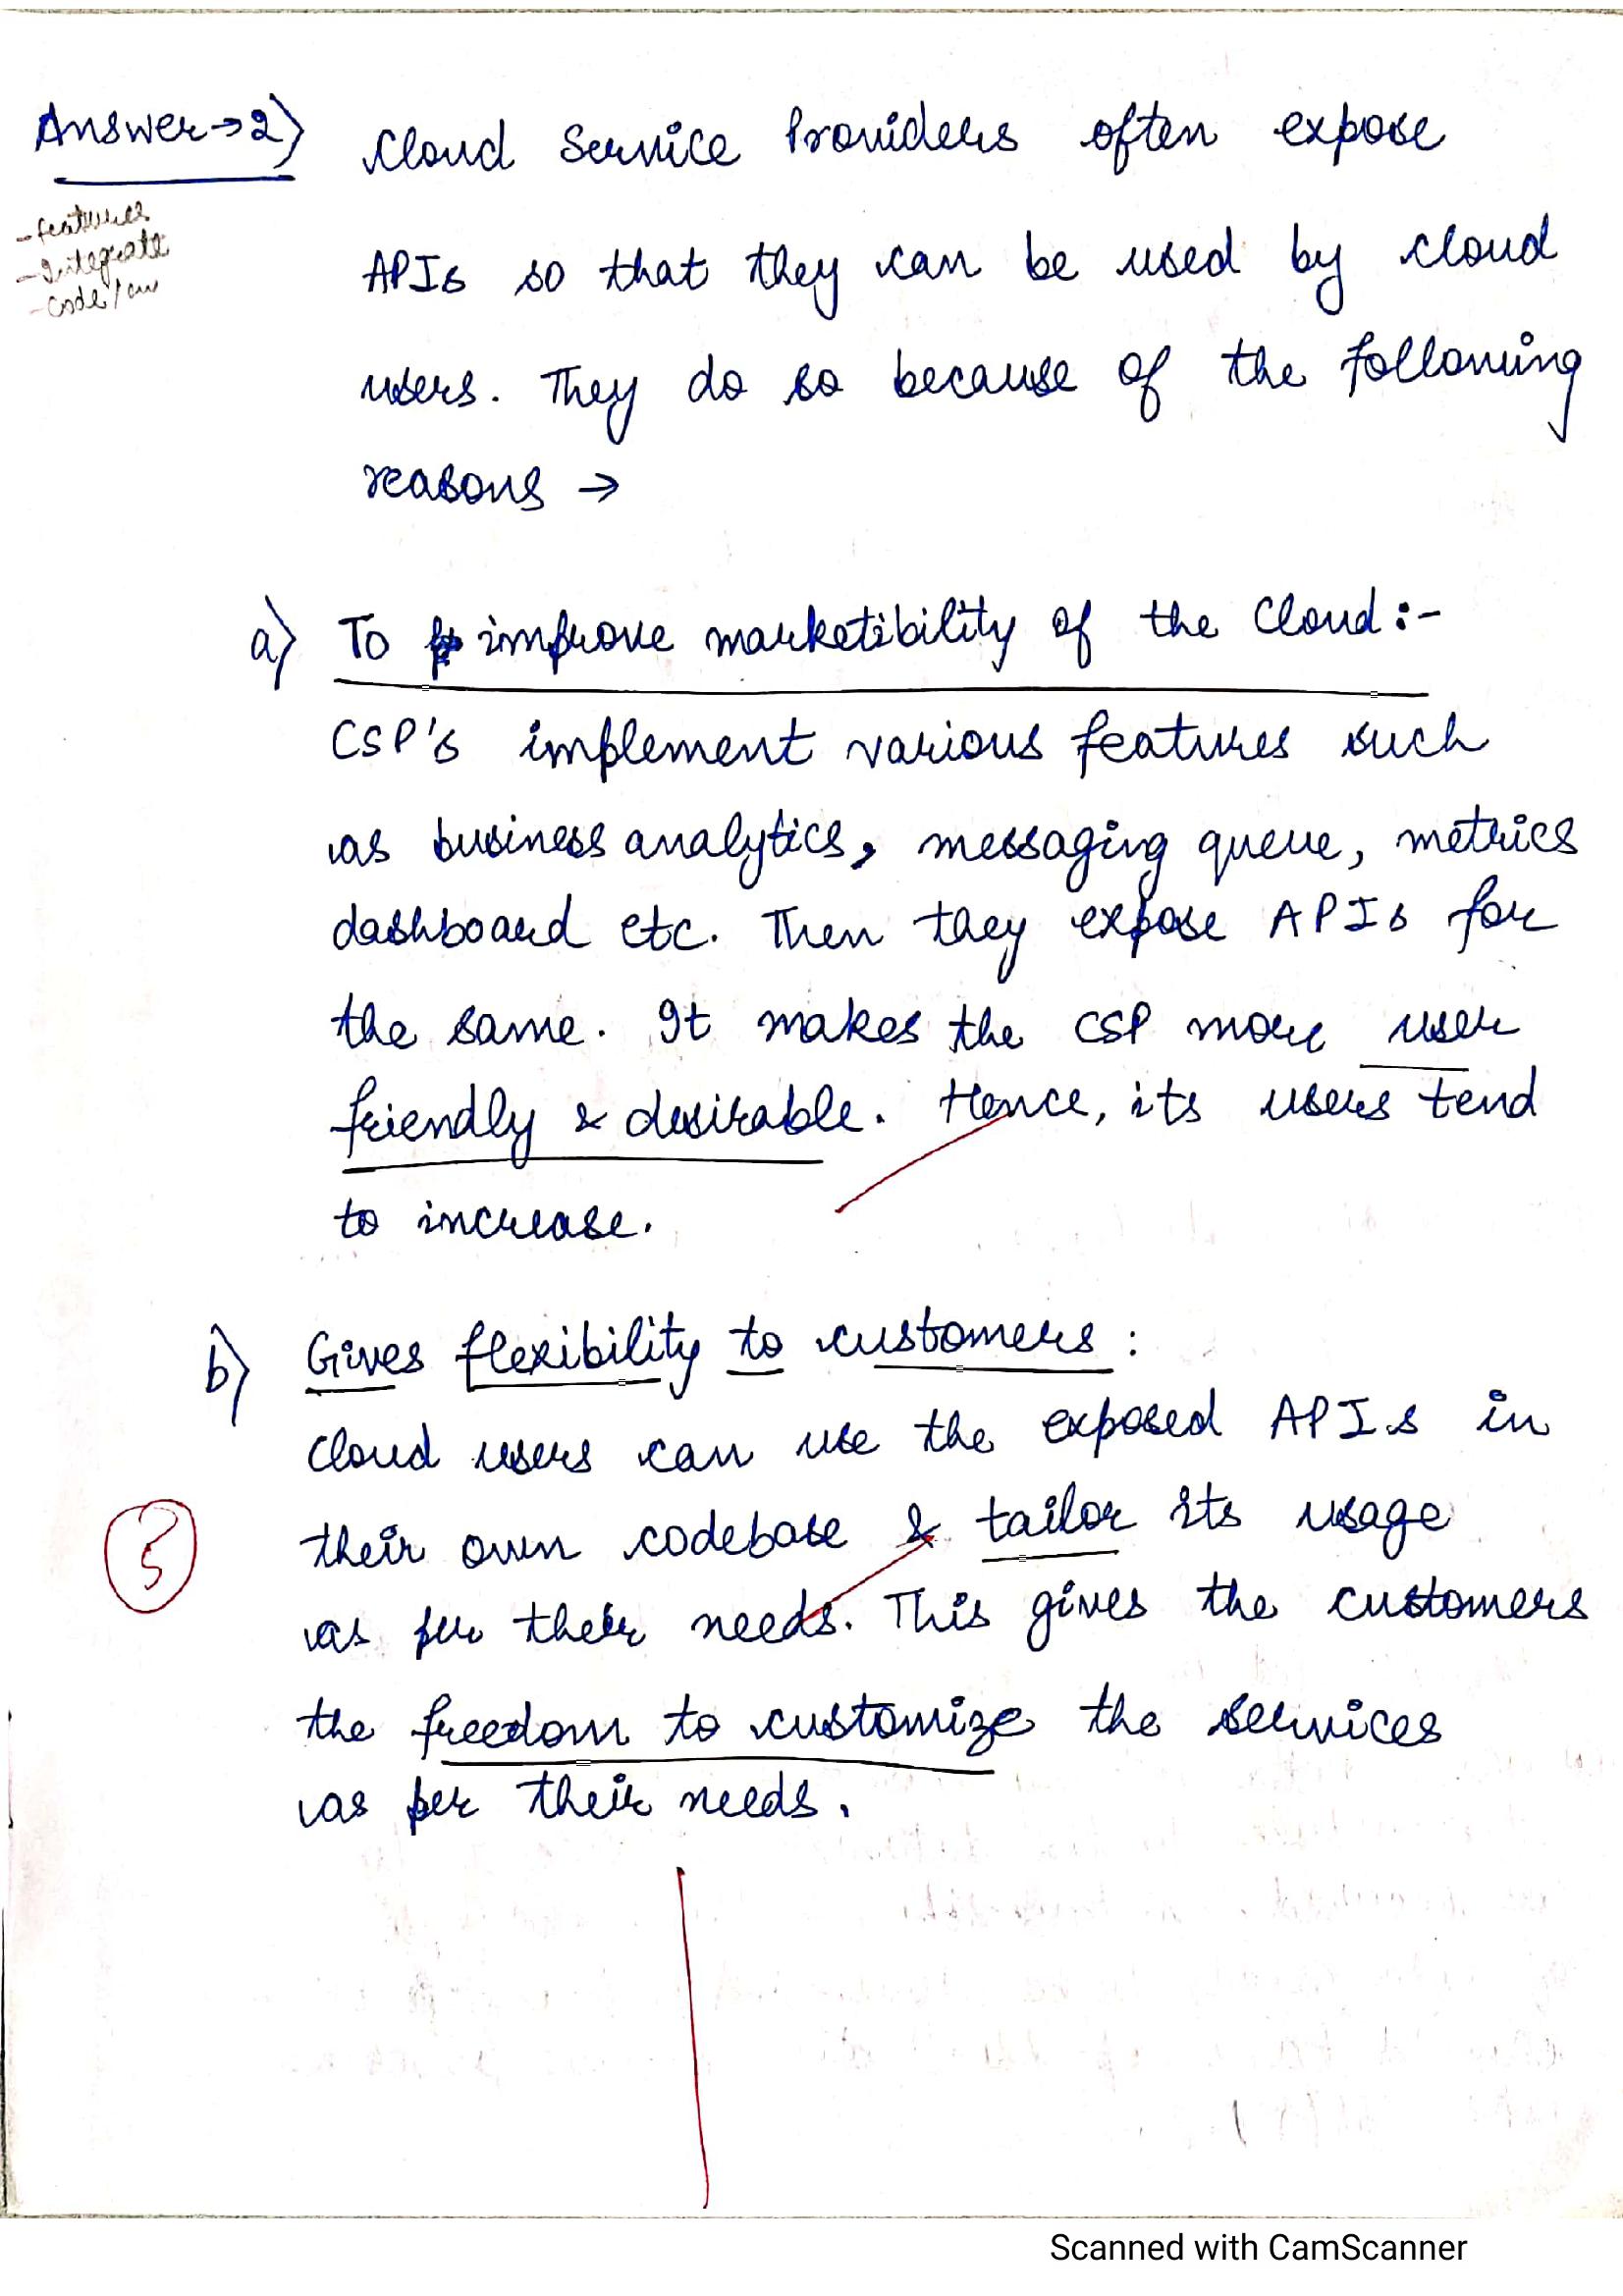 Answer→2)
Cloud Service Providers often expose
- features
- Integrate
- code/
APIs so that they can be used by cloud
users. They do so because of the following
reasons →
a) To improve marketibility of the Cloud:-
CSP's implement various features such
as business analytics, messaging queue, metrics
dashboard etc. Then they expose APIs for
the same. It makes the CSP more user
friendly & desirable. Hence, its users tend
to increase.
b) Gives flexibility to customers:
Cloud users can use the exposed APIs in
their own codebase & tailor its usage
as per their needs. This gives the customers
the freedom to customize the services
as per their needs.
Scanned with CamScanner